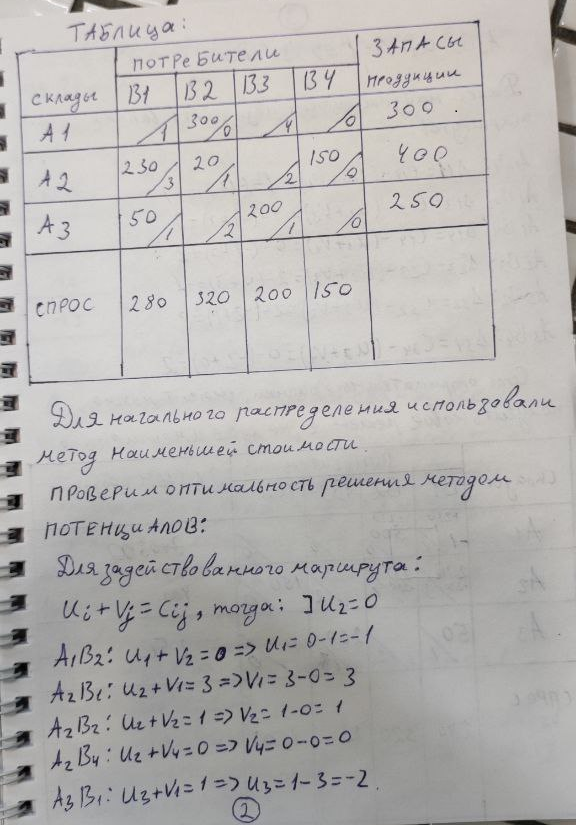 ТАБЛИЦА:
СКЛАДЫ ПОТРЕБИТЕЛИ ЗАПАСЫ ПРОДУЦИИ
B1 B2 B3 B4
A1 /1 300/0 /4 /0 300
A2 230/3 20/1 /2 150/0 400
A3 50/1 /2 200/1 /0 250
СПРОС 280 320 200 150
Для начального распределения использовали
метод наименьшей стоимости.
ПРОВЕРИМ ОПТИМАЛЬНОСТЬ решения методом
ПОТЕНЦИАЛОВ:
Для задействованного маршрута:
Ui + Vj = Cij, тогда: ] U2 = 0
A1B2: U1 + V2 = 0 => U1 = 0-1 = -1
A2B1: U2 + V1 = 3 => V1 = 3-0 = 3
A2B2: U2 + V2 = 1 => V2 = 1-0 = 1
A2B4: U2 + V4 = 0 => V4 = 0-0 = 0
A3B1: U3 + V1 = 1 => U3 = 1-3 = -2.
2